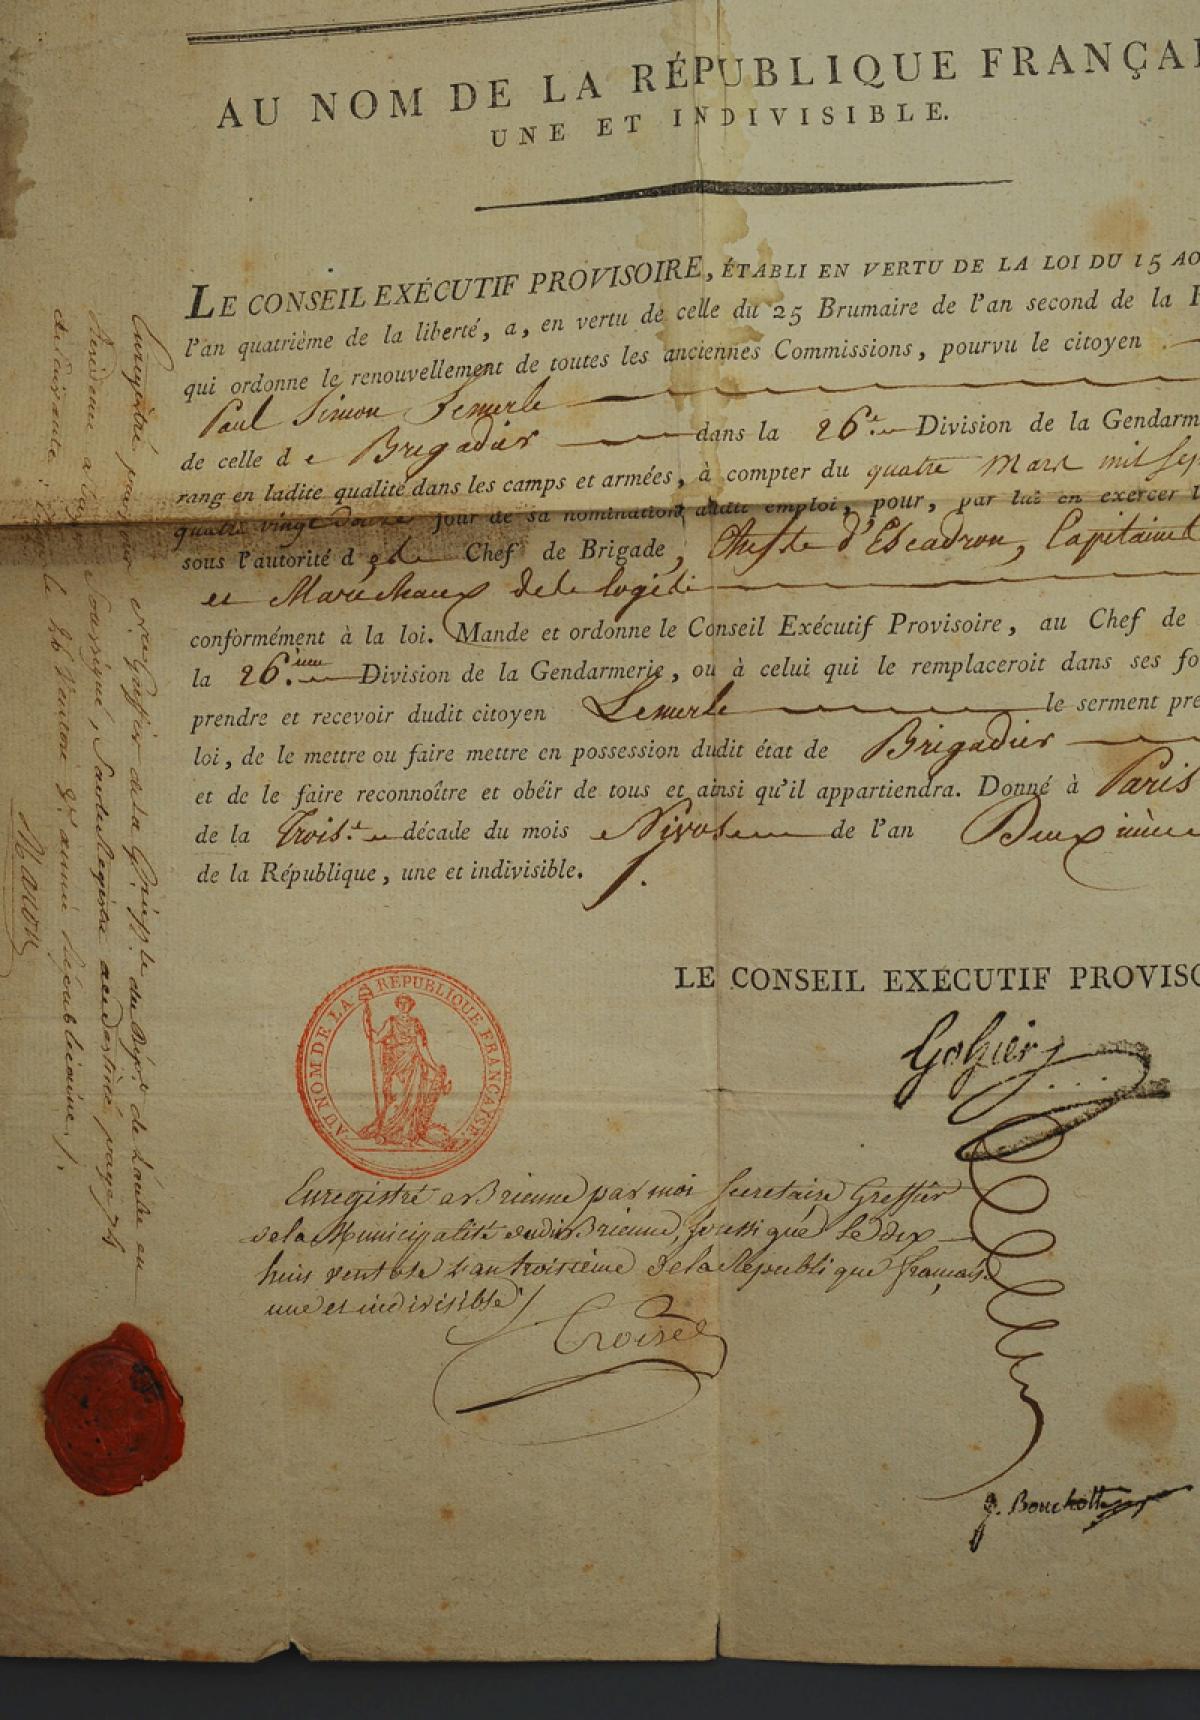 AU NOM DE LA RÉPUBLIQUE FRANÇAI
UNE ET INDIVISIBLE.
LE CONSEIL EXÉCUTIF PROVISOIRE, ÉTABLI EN VERTU DE LA LOI DU 15 AO
l'an quatrième de la liberté, a, en vertu de celle du 25 Brumaire de l'an second de la R
qui ordonne le renouvellement de toutes les anciennes Commissions, pourvu le citoyen
Paul Simon Lemerle
de celle de Brigadier dans la 26e Division de la Gendarm
rang en ladite qualité dans les camps et armées, à compter du quatre Mars mil sep
quatre vingt douze jour de sa nomination audit emploi, pour, par lui en exercer l
sous l'autorité d Chef de Brigade, Chefs d'Escadron, Capitaine
et Maréchaux de logis
conformément à la loi. Mande et ordonne le Conseil Exécutif Provisoire, au Chef de
la 26.ème Division de la Gendarmerie, ou à celui qui le remplaceroit dans ses fo
prendre et recevoir dudit citoyen Lemerle le serment pre
loi, de le mettre ou faire mettre en possession dudit état de Brigadier
et de le faire reconnoître et obéir de tous et ainsi qu'il appartiendra. Donné à Paris
de la Trois.e décade du mois Nivose de l'an Deuxième
de la République, une et indivisible.
LE CONSEIL EXÉCUTIF PROVISO
AU NOM DE LA RÉPUBLIQUE FRANÇAISE
Gohier
Enregistré a Brienne par moi Secretaire Greffier
de la Municipalité dudit Brienne, soussigné le dix
huit ventose l'an troisième de la République française
une et indivisible
Croisé
J. Bouchotte
Enregistré par moi Greffier de la du de L'aube
soussigné, sur le Registre a ce destiné page
le 26 Ventose 3e année républicaine